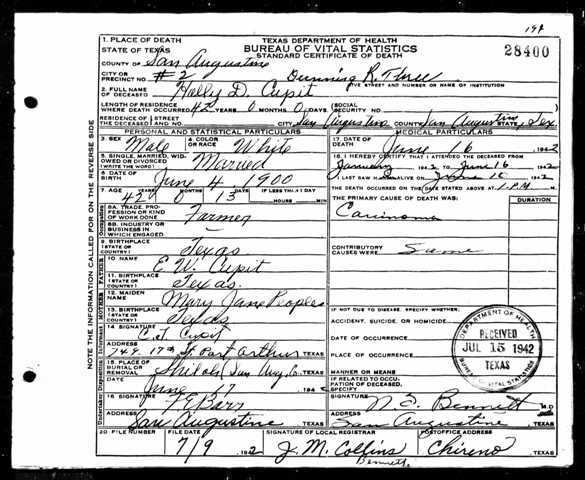 19A
1. PLACE OF DEATH
STATE OF TEXAS
TEXAS DEPARTMENT OF HEALTH
BUREAU OF VITAL STATISTICS
STANDARD CERTIFICATE OF DEATH
28400
COUNTY OF San Augustine
CITY OR PRECINCT NO. #2 Dunning R. Three
GIVE STREET AND NUMBER OR NAME OF INSTITUTION
2. FULL NAME OF DECEASED Holly D. Cupit
LENGTH OF RESIDENCE WHERE DEATH OCCURRED 42 YEARS 0 MONTHS 0 DAYS (SOCIAL SECURITY NO.)
RESIDENCE OF THE DECEASED STREET CITY San Augustine COUNTY San Augustine STATE, Tex.
PERSONAL AND STATISTICAL PARTICULARS
MEDICAL PARTICULARS
3. SEX Male 4. COLOR OR RACE White
17. DATE OF DEATH June 16 1942
5. SINGLE, MARRIED, WIDOWED OR DIVORCED (WRITE THE WORD) Married
18. I HEREBY CERTIFY THAT I ATTENDED THE DECEASED FROM
January 1942 TO June 16 1942
6. DATE OF BIRTH June 4 1900
I LAST SAW H ALIVE ON June 16 1942
THE DEATH OCCURRED ON THE DATE STATED ABOVE AT 1 P.M.
7. AGE YEARS 42 MONTHS 0 DAYS 13 IF LESS THAN 1 DAY HOURS MIN.
THE PRIMARY CAUSE OF DEATH WAS: DURATION
Carcinoma
8A. TRADE, PROFESSION OR KIND OF WORK DONE Farmer
8B. INDUSTRY OR BUSINESS IN WHICH ENGAGED
CONTRIBUTORY CAUSES WERE: Same
9. BIRTHPLACE (STATE OR COUNTRY) Texas
10 NAME E W. Cupit
11. BIRTHPLACE (STATE OR COUNTRY) Texas
12. MAIDEN NAME Mary Jane Peoples
13. BIRTHPLACE (STATE OR COUNTRY) Texas
IF NOT DUE TO DISEASE, SPECIFY WHETHER:
ACCIDENT, SUICIDE, OR HOMICIDE
DATE OF OCCURRENCE
PLACE OF OCCURRENCE
14 SIGNATURE C.J. Cupit
ADDRESS 749 17th St Port Arthur TEXAS
MANNER OR MEANS
15. PLACE OF BURIAL OR REMOVAL Shiloh (San Aug. Co. TEXAS
IF RELATED TO OCCUPATION OF DECEASED, SPECIFY
DATE June 17 194
16 SIGNATURE F E Barr
SIGNATURE N. E. Bennett M.D.
ADDRESS San Augustine TEXAS
ADDRESS San Augustine TEXAS
20. FILE NUMBER FILE DATE 7/9 1942
SIGNATURE OF LOCAL REGISTRAR J. M. Collins
Bennett
POSTOFFICE ADDRESS Chireno TEXAS
DEPARTMENT OF HEALTH
RECEIVED
JUL 15 1942
TEXAS
BUREAU OF VITAL STATISTICS
NOTE THE INFORMATION CALLED FOR ON THE REVERSE SIDE
Occupation
FATHER
MOTHER
Informant
Undertaker